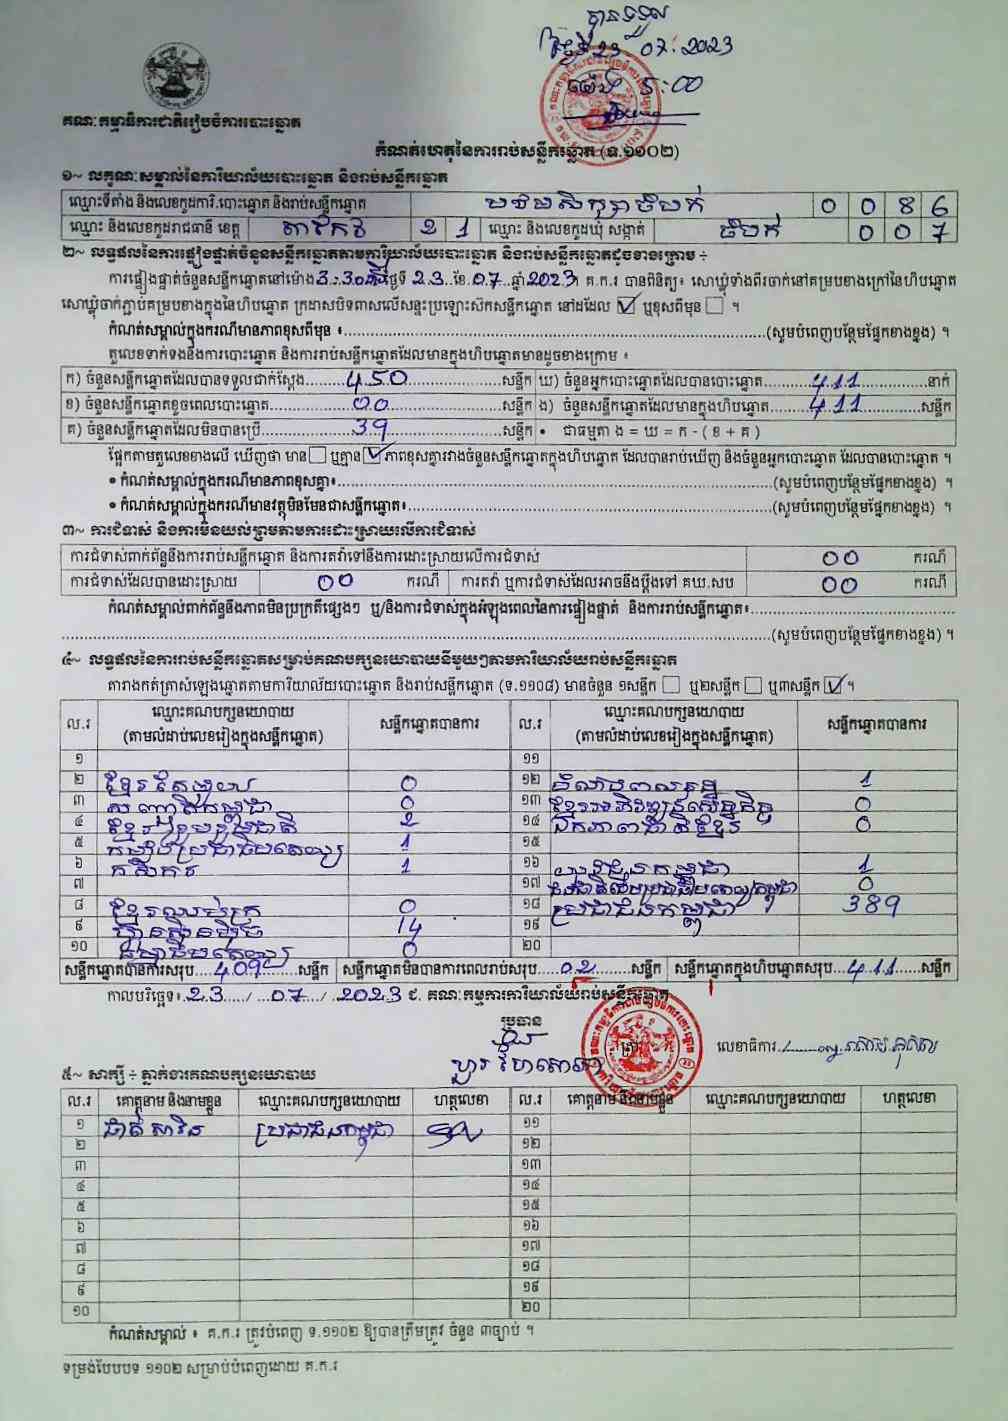 បានទទួល
ថ្ងៃទី 23. 07. 2023
ម៉ោង 5:00
គណៈកម្មាធិការជាតិរៀបចំការបោះឆ្នោត
កំណត់ហេតុនៃការរាប់សន្លឹកឆ្នោត (ទ.១១០២)
១~ លក្ខណៈសម្គាល់នៃការិយាល័យបោះឆ្នោត និងរាប់សន្លឹកឆ្នោត
ឈ្មោះទីតាំង និងលេខកូដការិ.បោះឆ្នោត និងរាប់សន្លឹកឆ្នោត បឋមសិក្សាចំបក់ 0 0 8 6
ឈ្មោះ និងលេខកូដរាជធានី ខេត្ត តាកែវ 2 1 ឈ្មោះ និងលេខកូដឃុំ សង្កាត់ ចំបក់ 0 0 7
២~ លទ្ធផលនៃការផ្ទៀងផ្ទាត់ចំនួនសន្លឹកឆ្នោតតាមការិយាល័យបោះឆ្នោត និងរាប់សន្លឹកឆ្នោតដូចខាងក្រោម ÷
ការផ្ទៀងផ្ទាត់ចំនួនសន្លឹកឆ្នោតនៅម៉ោង 3:30 ថ្ងៃទី 23 ខែ 07 ឆ្នាំ 2023 ។ គ.ក.រ បានពិនិត្យ៖ សោឃ្លុំទាំងពីរចាក់នៅគម្របខាងក្រៅនៃហិបឆ្នោត
សោឃ្លុំចាក់ភ្ជាប់គម្របខាងក្នុងនៃហិបឆ្នោត ក្រដាសបិទពាសលើសន្ទះប្រឡោះស៊កសន្លឹកឆ្នោត នៅដដែល ☑ ឬខុសពីមុន ☐ ។
កំណត់សម្គាល់ក្នុងករណីមានភាពខុសពីមុន ៖ (សូមបំពេញបន្ថែមផ្នែកខាងខ្នង) ។
តួលេខទាក់ទងនឹងការបោះឆ្នោត និងការរាប់សន្លឹកឆ្នោតដែលមានក្នុងហិបឆ្នោតមានដូចខាងក្រោម ៖
ក) ចំនួនសន្លឹកឆ្នោតដែលបានទទួលជាក់ស្តែង 450 សន្លឹក ឃ) ចំនួនអ្នកបោះឆ្នោតដែលបានបោះឆ្នោត 411 នាក់
ខ) ចំនួនសន្លឹកឆ្នោតខូចពេលបោះឆ្នោត 00 សន្លឹក ង) ចំនួនសន្លឹកឆ្នោតដែលមានក្នុងហិបឆ្នោត 411 សន្លឹក
គ) ចំនួនសន្លឹកឆ្នោតដែលមិនបានប្រើ 39 សន្លឹក • ជាធម្មតា ង = ឃ = ក - ( ខ + គ )
ផ្អែកតាមតួលេខខាងលើ ឃើញថា មាន ☐ ឬគ្មាន ☑ ភាពខុសគ្នារវាងចំនួនសន្លឹកឆ្នោតក្នុងហិបឆ្នោត ដែលបានរាប់ឃើញ និងចំនួនអ្នកបោះឆ្នោត ដែលបានបោះឆ្នោត ។
• កំណត់សម្គាល់ក្នុងករណីមានភាពខុសគ្នា៖ (សូមបំពេញបន្ថែមផ្នែកខាងខ្នង) ។
• កំណត់សម្គាល់ក្នុងករណីមានវត្ថុមិនមែនជាសន្លឹកឆ្នោត៖ (សូមបំពេញបន្ថែមផ្នែកខាងខ្នង) ។
៣~ ការជំទាស់ និងការមិនយល់ព្រមតាមការដោះស្រាយលើការជំទាស់
ការជំទាស់ពាក់ព័ន្ធនឹងការរាប់សន្លឹកឆ្នោត និងការតវ៉ាទៅនឹងការដោះស្រាយលើការជំទាស់ 00 ករណី
ការជំទាស់ដែលបានដោះស្រាយ 00 ករណី ការតវ៉ា ឬការជំទាស់ដែលអាចនឹងប្តឹងទៅ គឃ.សប 00 ករណី
កំណត់សម្គាល់ពាក់ព័ន្ធនឹងភាពមិនប្រក្រតីផ្សេងៗ ឬ/និងការជំទាស់ក្នុងអំឡុងពេលនៃការផ្ទៀងផ្ទាត់ និងការរាប់សន្លឹកឆ្នោត៖
(សូមបំពេញបន្ថែមផ្នែកខាងខ្នង) ។
៤~ លទ្ធផលនៃការរាប់សន្លឹកឆ្នោតសម្រាប់គណបក្សនយោបាយនីមួយៗតាមការិយាល័យរាប់សន្លឹកឆ្នោត
តារាងកត់ត្រាសំឡេងឆ្នោតតាមការិយាល័យបោះឆ្នោត និងរាប់សន្លឹកឆ្នោត (ទ.១១០៨) មានចំនួន ១សន្លឹក ☐ ឬ២សន្លឹក ☐ ឬ៣សន្លឹក ☑ ។
ល.រ ឈ្មោះគណបក្សនយោបាយ (តាមលំដាប់លេខរៀងក្នុងសន្លឹកឆ្នោត) សន្លឹកឆ្នោតបានការ ល.រ ឈ្មោះគណបក្សនយោបាយ (តាមលំដាប់លេខរៀងក្នុងសន្លឹកឆ្នោត) សន្លឹកឆ្នោតបានការ
១ ១១
២ ខ្មែរតែមួយ 0 ១២ 1
៣ សញ្ជាតិកម្ពុជា 0 ១៣ ខ្មែរអភិវឌ្ឍន៍សេដ្ឋកិច្ច 0
៤ ខ្មែររួបរួមជាតិ 2 ១៤ ឯកភាពជាតិខ្មែរ 0
៥ កម្លាំងប្រជាធិបតេយ្យ 1 ១៥
៦ កសិករ 1 ១៦ យុវជនកម្ពុជា 1
៧ ១៧ សំបុកឃ្មុំសង្គមប្រជាធិបតេយ្យកម្ពុជា 0
៨ ខ្មែរឈប់ក្រ 0 ១៨ ប្រជាជនកម្ពុជា 389
៩ ហ៊្វុនស៊ិនប៉ិច 14 ១៩
១០ ធម្មាធិបតេយ្យ 0 ២០
សន្លឹកឆ្នោតបានការសរុប 409 សន្លឹក សន្លឹកឆ្នោតមិនបានការពេលរាប់សរុប 02 សន្លឹក សន្លឹកឆ្នោតក្នុងហិបឆ្នោតសរុប 411 សន្លឹក
កាលបរិច្ឆេទ៖ 23 / 07 / 2023 ជ. គណៈកម្មការការិយាល័យរាប់សន្លឹកឆ្នោត
ប្រធាន
លេខាធិការ
៥~ សាក្សី ÷ ភ្នាក់ងារគណបក្សនយោបាយ
ល.រ គោត្តនាម និងនាមខ្លួន ឈ្មោះគណបក្សនយោបាយ ហត្ថលេខា ល.រ គោត្តនាម និងនាមខ្លួន ឈ្មោះគណបក្សនយោបាយ ហត្ថលេខា
១ ប្រជាជនកម្ពុជា ១១
២ ១២
៣ ១៣
៤ ១៤
៥ ១៥
៦ ១៦
៧ ១៧
៨ ១៨
៩ ១៩
១០ ២០
កំណត់សម្គាល់ ៖ គ.ក.រ ត្រូវបំពេញ ទ.១១០២ ឱ្យបានត្រឹមត្រូវ ចំនួន ៣ច្បាប់ ។
ទម្រង់បែបបទ ១១០២ សម្រាប់បំពេញដោយ គ.ក.រ